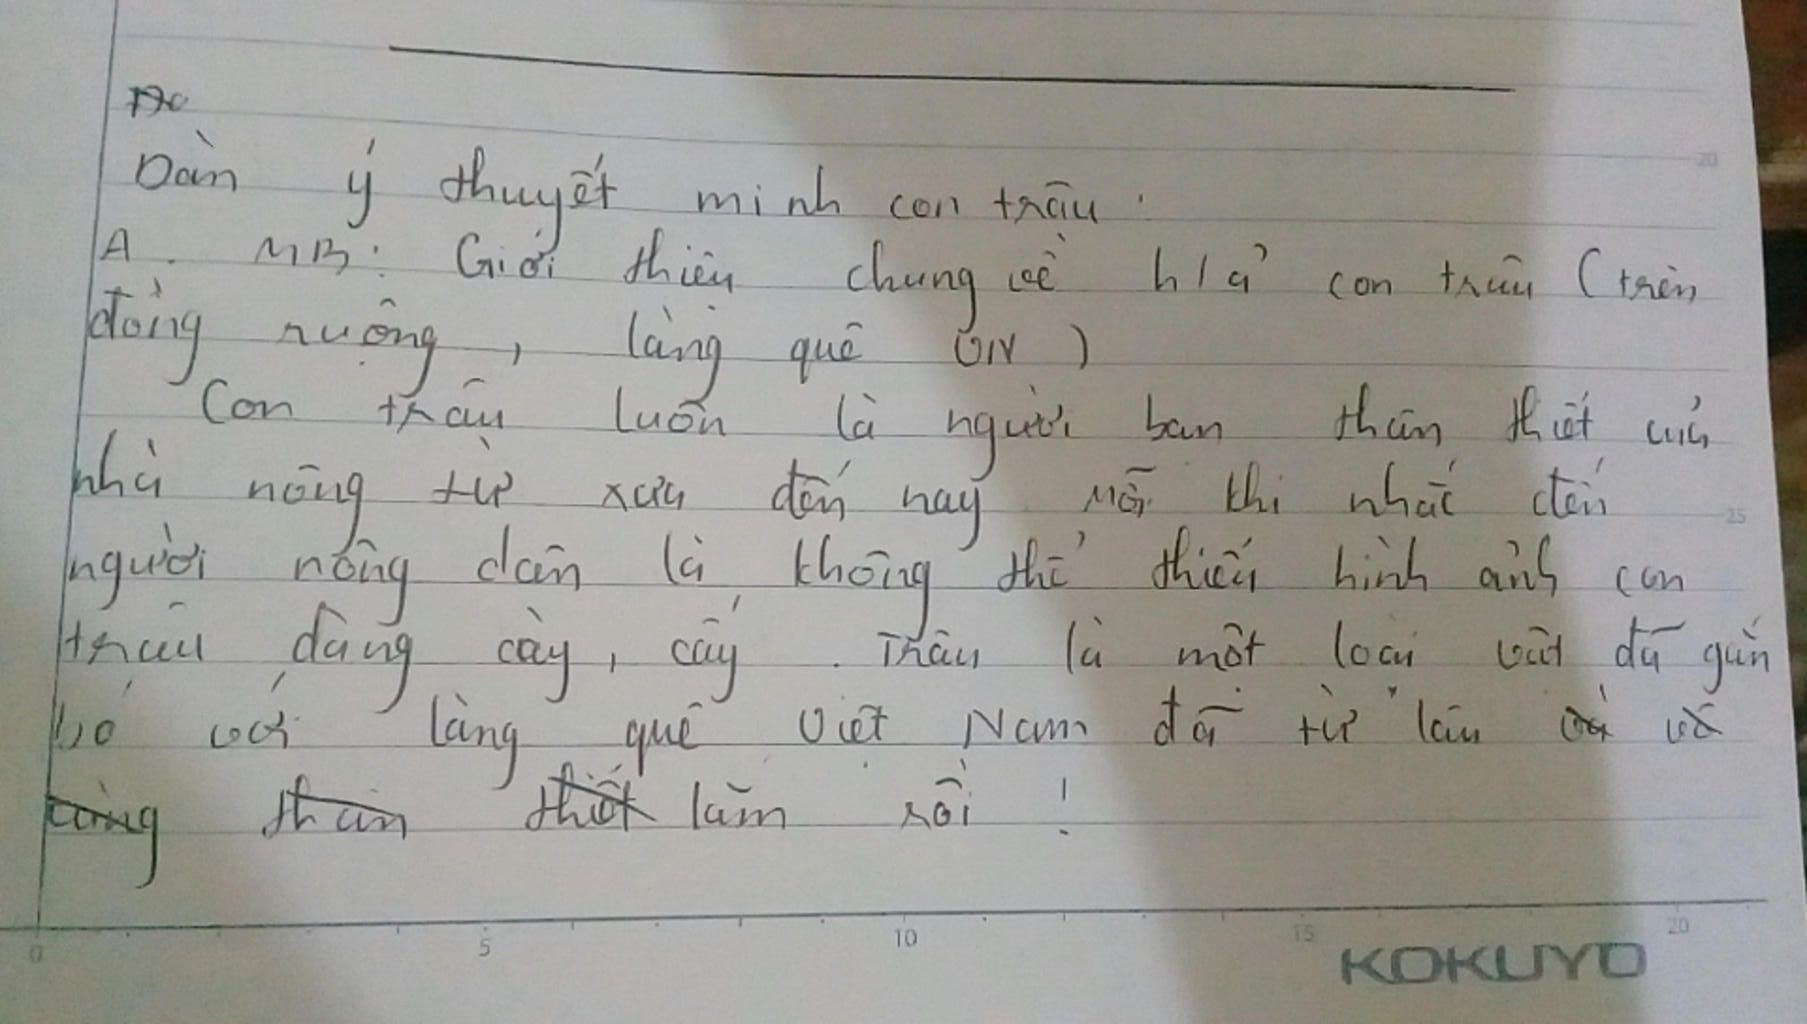 Dàn ý thuyết minh con trâu.
A. MB: Giới thiệu chung về h/ả con trâu (trên
đồng ruộng, làng quê VN)
Con trâu luôn là người bạn thân thiết của
nhà nông từ xưa đến nay. Mỗi khi nhắc đến
người nông dân là không thể thiếu hình ảnh con
trâu đang cày, cấy. Trâu là một loài vật đã gắn
bó với làng quê Việt Nam đã từ lâu
lắm rồi!
0 5 10 15 20
20
25
KOKUYO